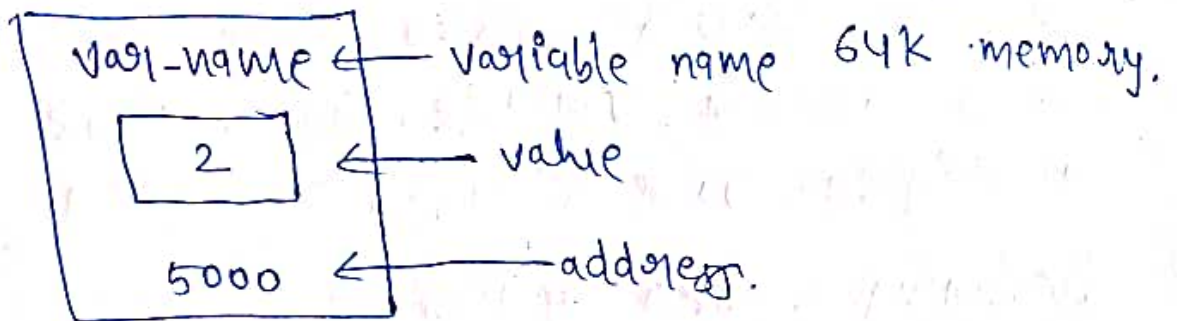 var-name ← variable name 64K memory.
2 ← value
5000 ← address.